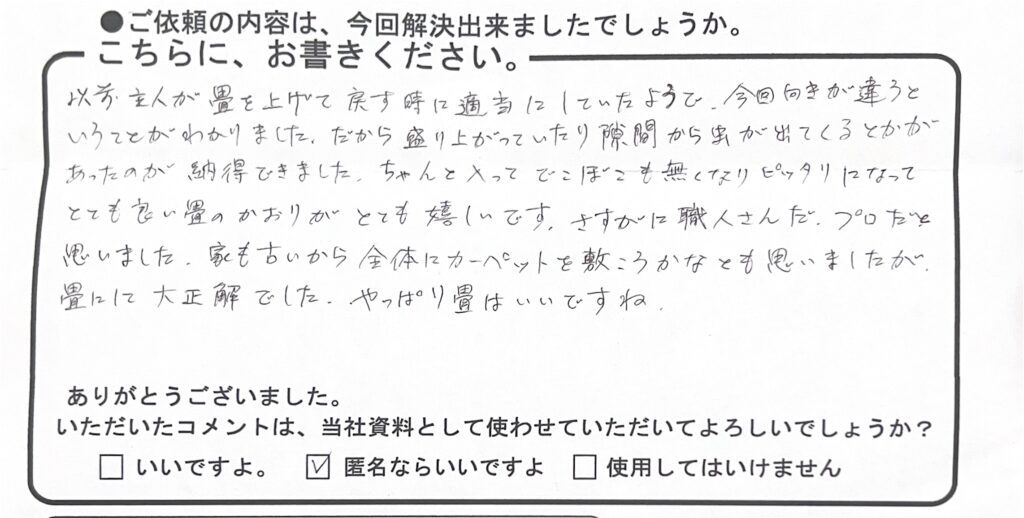 ●ご依頼の内容は、今回解決出来ましたでしょうか。
こちらに、お書きください。
以前主人が畳を上げて戻す時に適当にしていたようで、今回向きが違うと
いうことがわかりました。だから盛り上がっていたり隙間から虫が出てくるとかが
あったのが納得できました。ちゃんと入ってでこぼこも無くなりピッタリになって
とても良い畳のかおりがとても嬉しいです。さすがに職人さんだ、プロだと
思いました。家も古いから全体にカーペットを敷ころかなとも思いましたが、
畳にして大正解でした。やっぱり畳はいいですね。
ありがとうございました。
いただいたコメントは、当社資料として使わせていただいてよろしいでしょうか？
□ いいですよ。 ☑ 匿名ならいいですよ □ 使用してはいけません